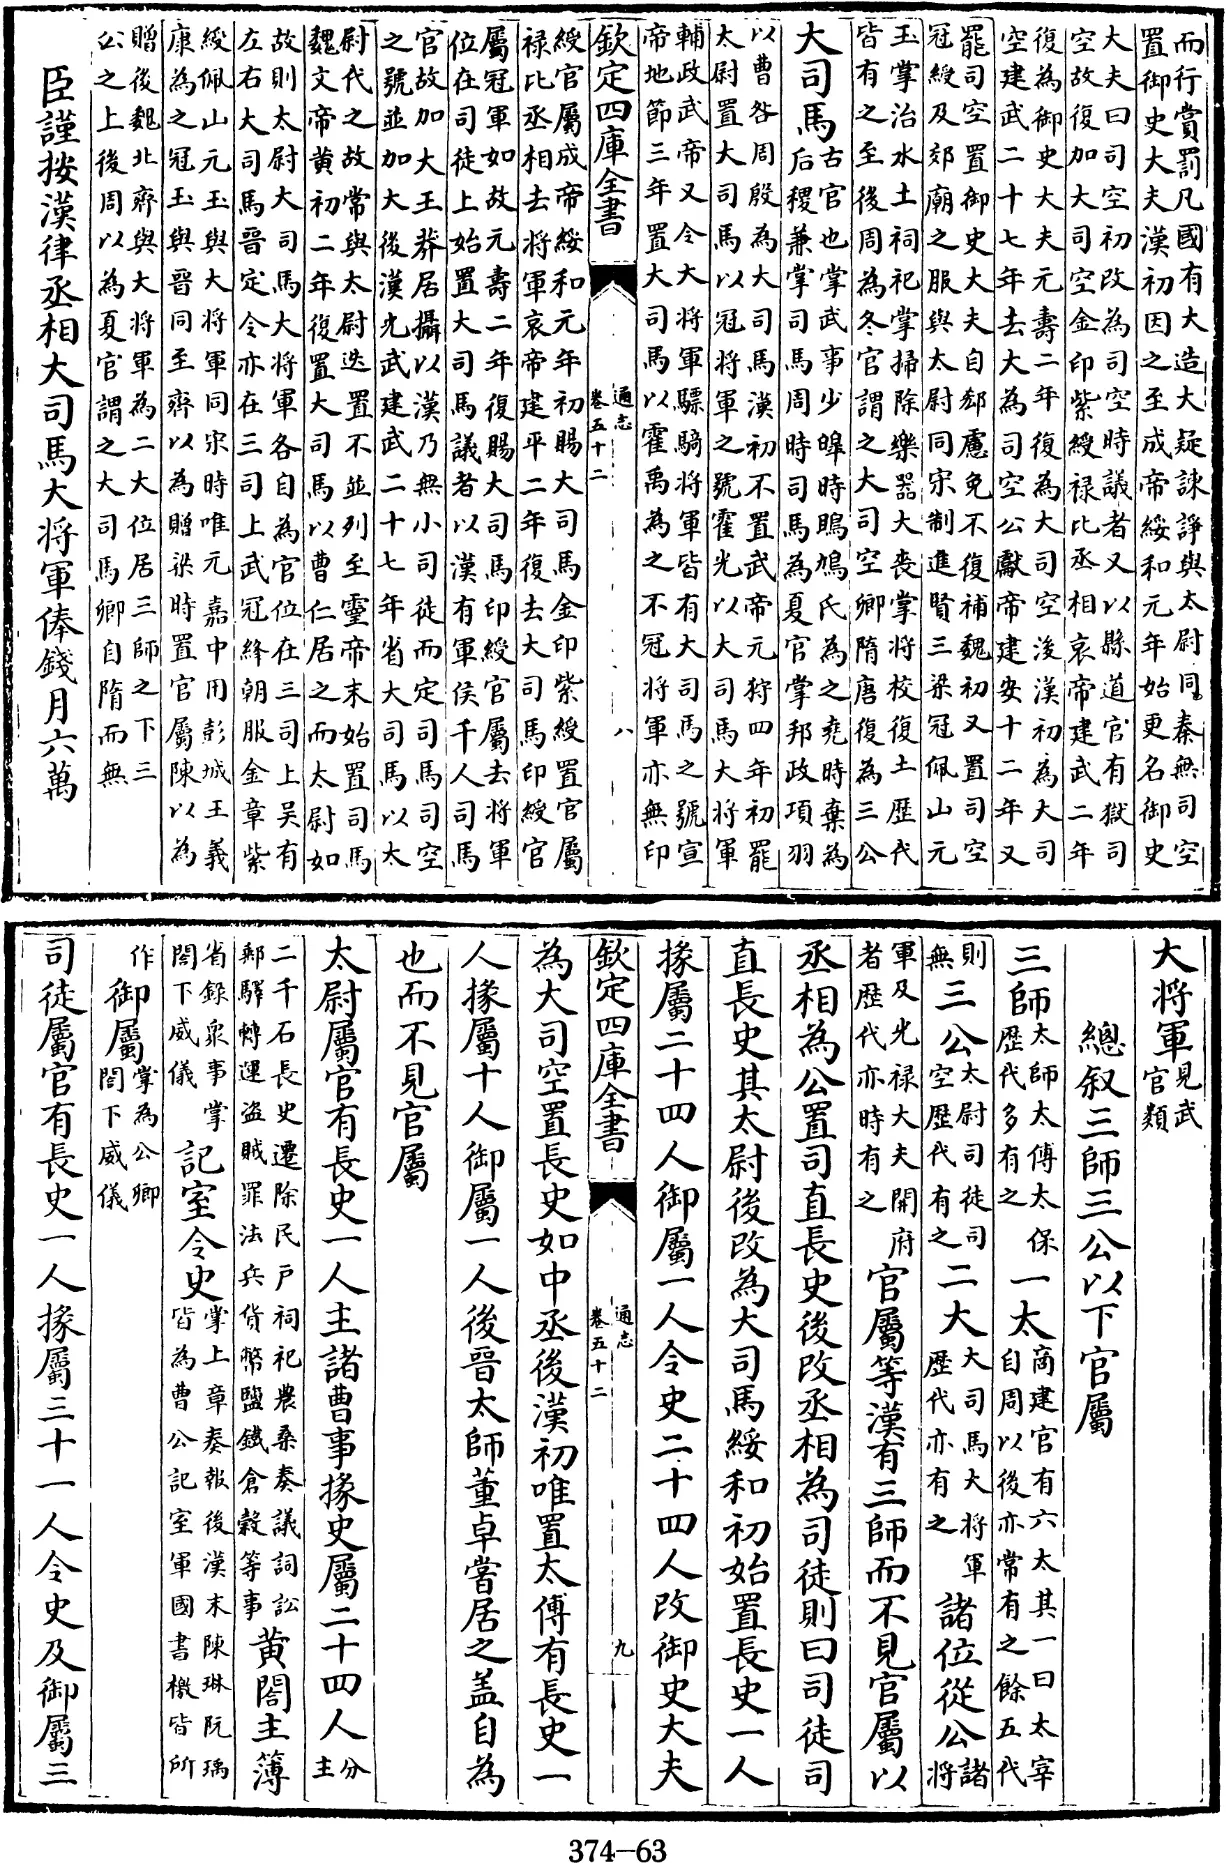 而行賞罰凡國有大造大疑諫諍與太尉同秦無司空
置御史大夫漢初因之至成帝綏和元年始更名御史
大夫曰司空初改為司空時議者又以縣道官有獄司
空故復加大司空金印紫綬祿比丞相哀帝建武二年
復為御史大夫元壽二年復為大司空後漢初為大司
空建武二十七年去大為司空公獻帝建安十二年又
罷司空置御史大夫自郄慮免不復補魏初又置司空
冠綬及郊廟之服與太尉同宋制進賢三梁冠佩山元
玉掌治水土祠祀掌掃除樂器大喪掌將校復土歷代
皆有之至後周為冬官謂之大司空卿隋唐復為三公
大司馬古官也掌武事少皞時鵙鳩氏為之堯時棄為
后稷兼掌司馬周時司馬為夏官掌邦政項羽
以曹咎周殷為大司馬漢初不置武帝元狩四年初罷
太尉置大司馬以冠將軍之號霍光以大司馬大將軍
輔政武帝又令大將軍驃騎將軍皆有大司馬之號宣
帝地節三年置大司馬以霍禹為之不冠將軍亦無印
欽定四庫全書 通志 卷五十二 八
綬官屬成帝綏和元年初賜大司馬金印紫綬置官屬
祿比丞相去將軍哀帝建平二年復去大司馬印綬官
屬冠軍如故元壽二年復賜大司馬印綬官屬去將軍
位在司徒上始置大司馬議者以漢有軍侯千人司馬
官故加大王莽居攝以漢乃無小司徒而定司馬司空
之號並加大後漢光武建武二十七年省大司馬以太
尉代之故常與太尉迭置不並列至靈帝末始置司馬
魏文帝黃初二年復置大司馬以曹仁居之而太尉如
故則太尉大司馬大將軍各自為官位在三司上吳有
左右大司馬晉定令亦在三司上武冠絳朝服金章紫
綬佩山元玉與大將軍同宋時唯元嘉中用彭城王義
康為之冠玉與晉同至齊以為贈梁時置官屬陳以為
贈後魏北齊與大將軍為二大位居三師之下三
公之上後周以為夏官謂之大司馬卿自隋而無
臣謹按漢律丞相大司馬大將軍俸錢月六萬
大將軍見武官類
總叙三師三公以下官屬
三師太師太傅太保歷代多有之一太商建官有六太其一曰太宰自周以後亦常有之餘五代
則無三公太尉司徒司空歷代有之二大大司馬大將軍歷代亦有之諸位從公諸將
軍及光祿大夫開府者歷代亦時有之官屬等漢有三師而不見官屬以
丞相為公置司直長史後改丞相為司徒則曰司徒司
直長史其太尉後改為大司馬綏和初始置長史一人
掾屬二十四人御屬一人令史二十四人改御史大夫
欽定四庫全書 通志 卷五十二 九
為大司空置長史如中丞後漢初唯置太傅有長史一
人掾屬十人御屬一人後晉太師董卓嘗居之蓋自為
也而不見官屬
太尉屬官有長史一人主諸曹事掾史屬二十四人分主
二千石長史遷除民戶祠祀農桑奏議詞訟
郵驛轉運盜賊罪法兵貨幣鹽鐵倉穀等事黃閤主簿
省錄衆事掌閤下威儀記室令史掌上章奏報後漢末陳琳阮瑀皆為曹公記室軍國書檄皆所
作御屬掌為公卿閤下威儀
司徒屬官有長史一人掾屬三十一人令史及御屬三
374-63